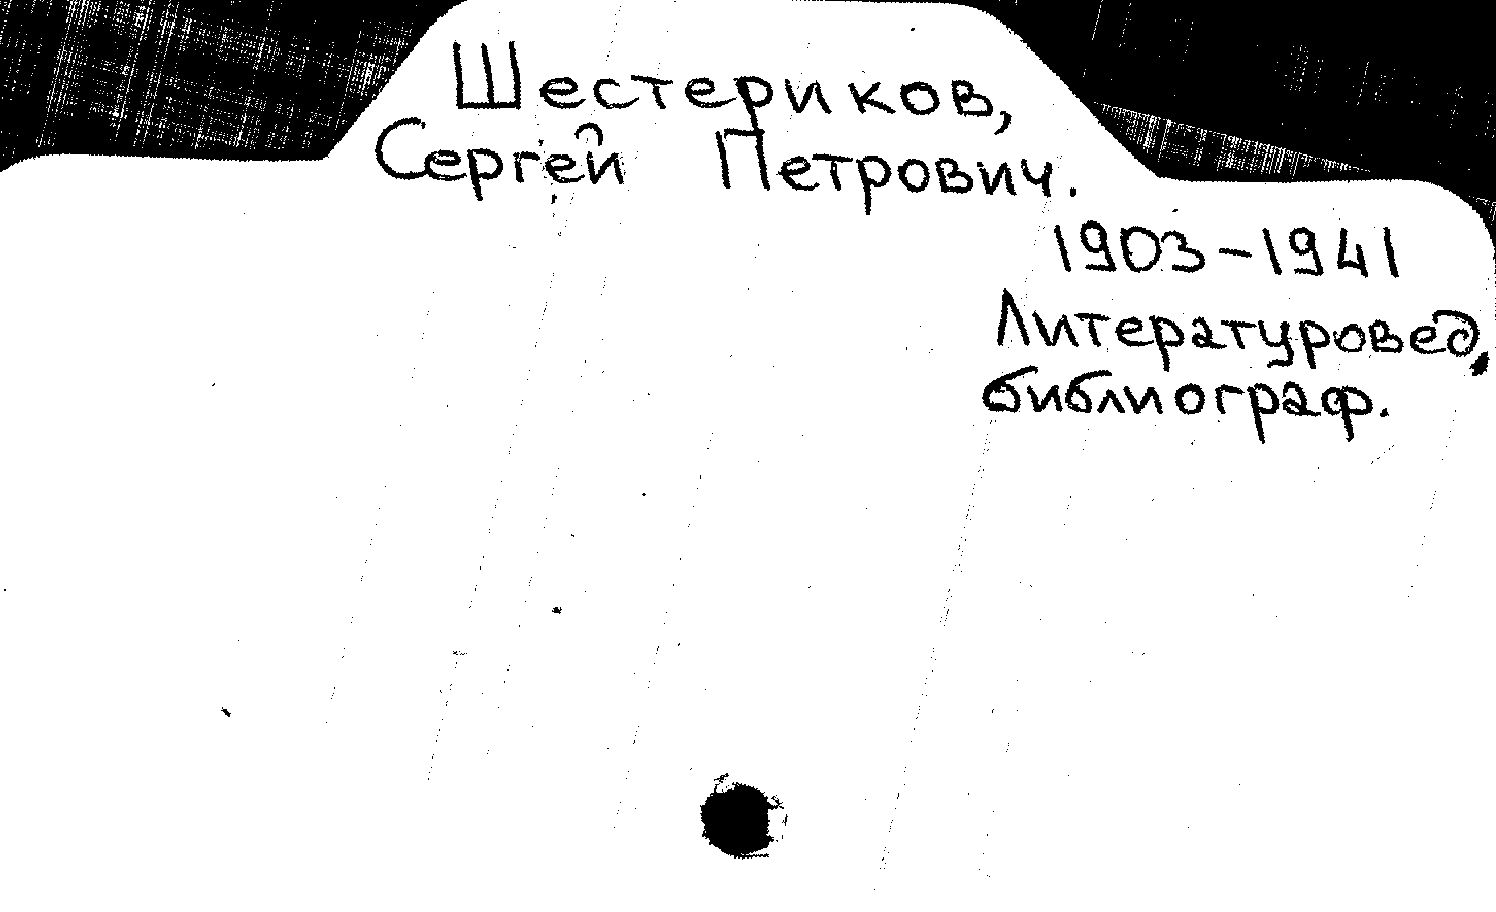 Шестериков,
Сергей Петрович.
1903-1941
Литературовед,
библиограф.